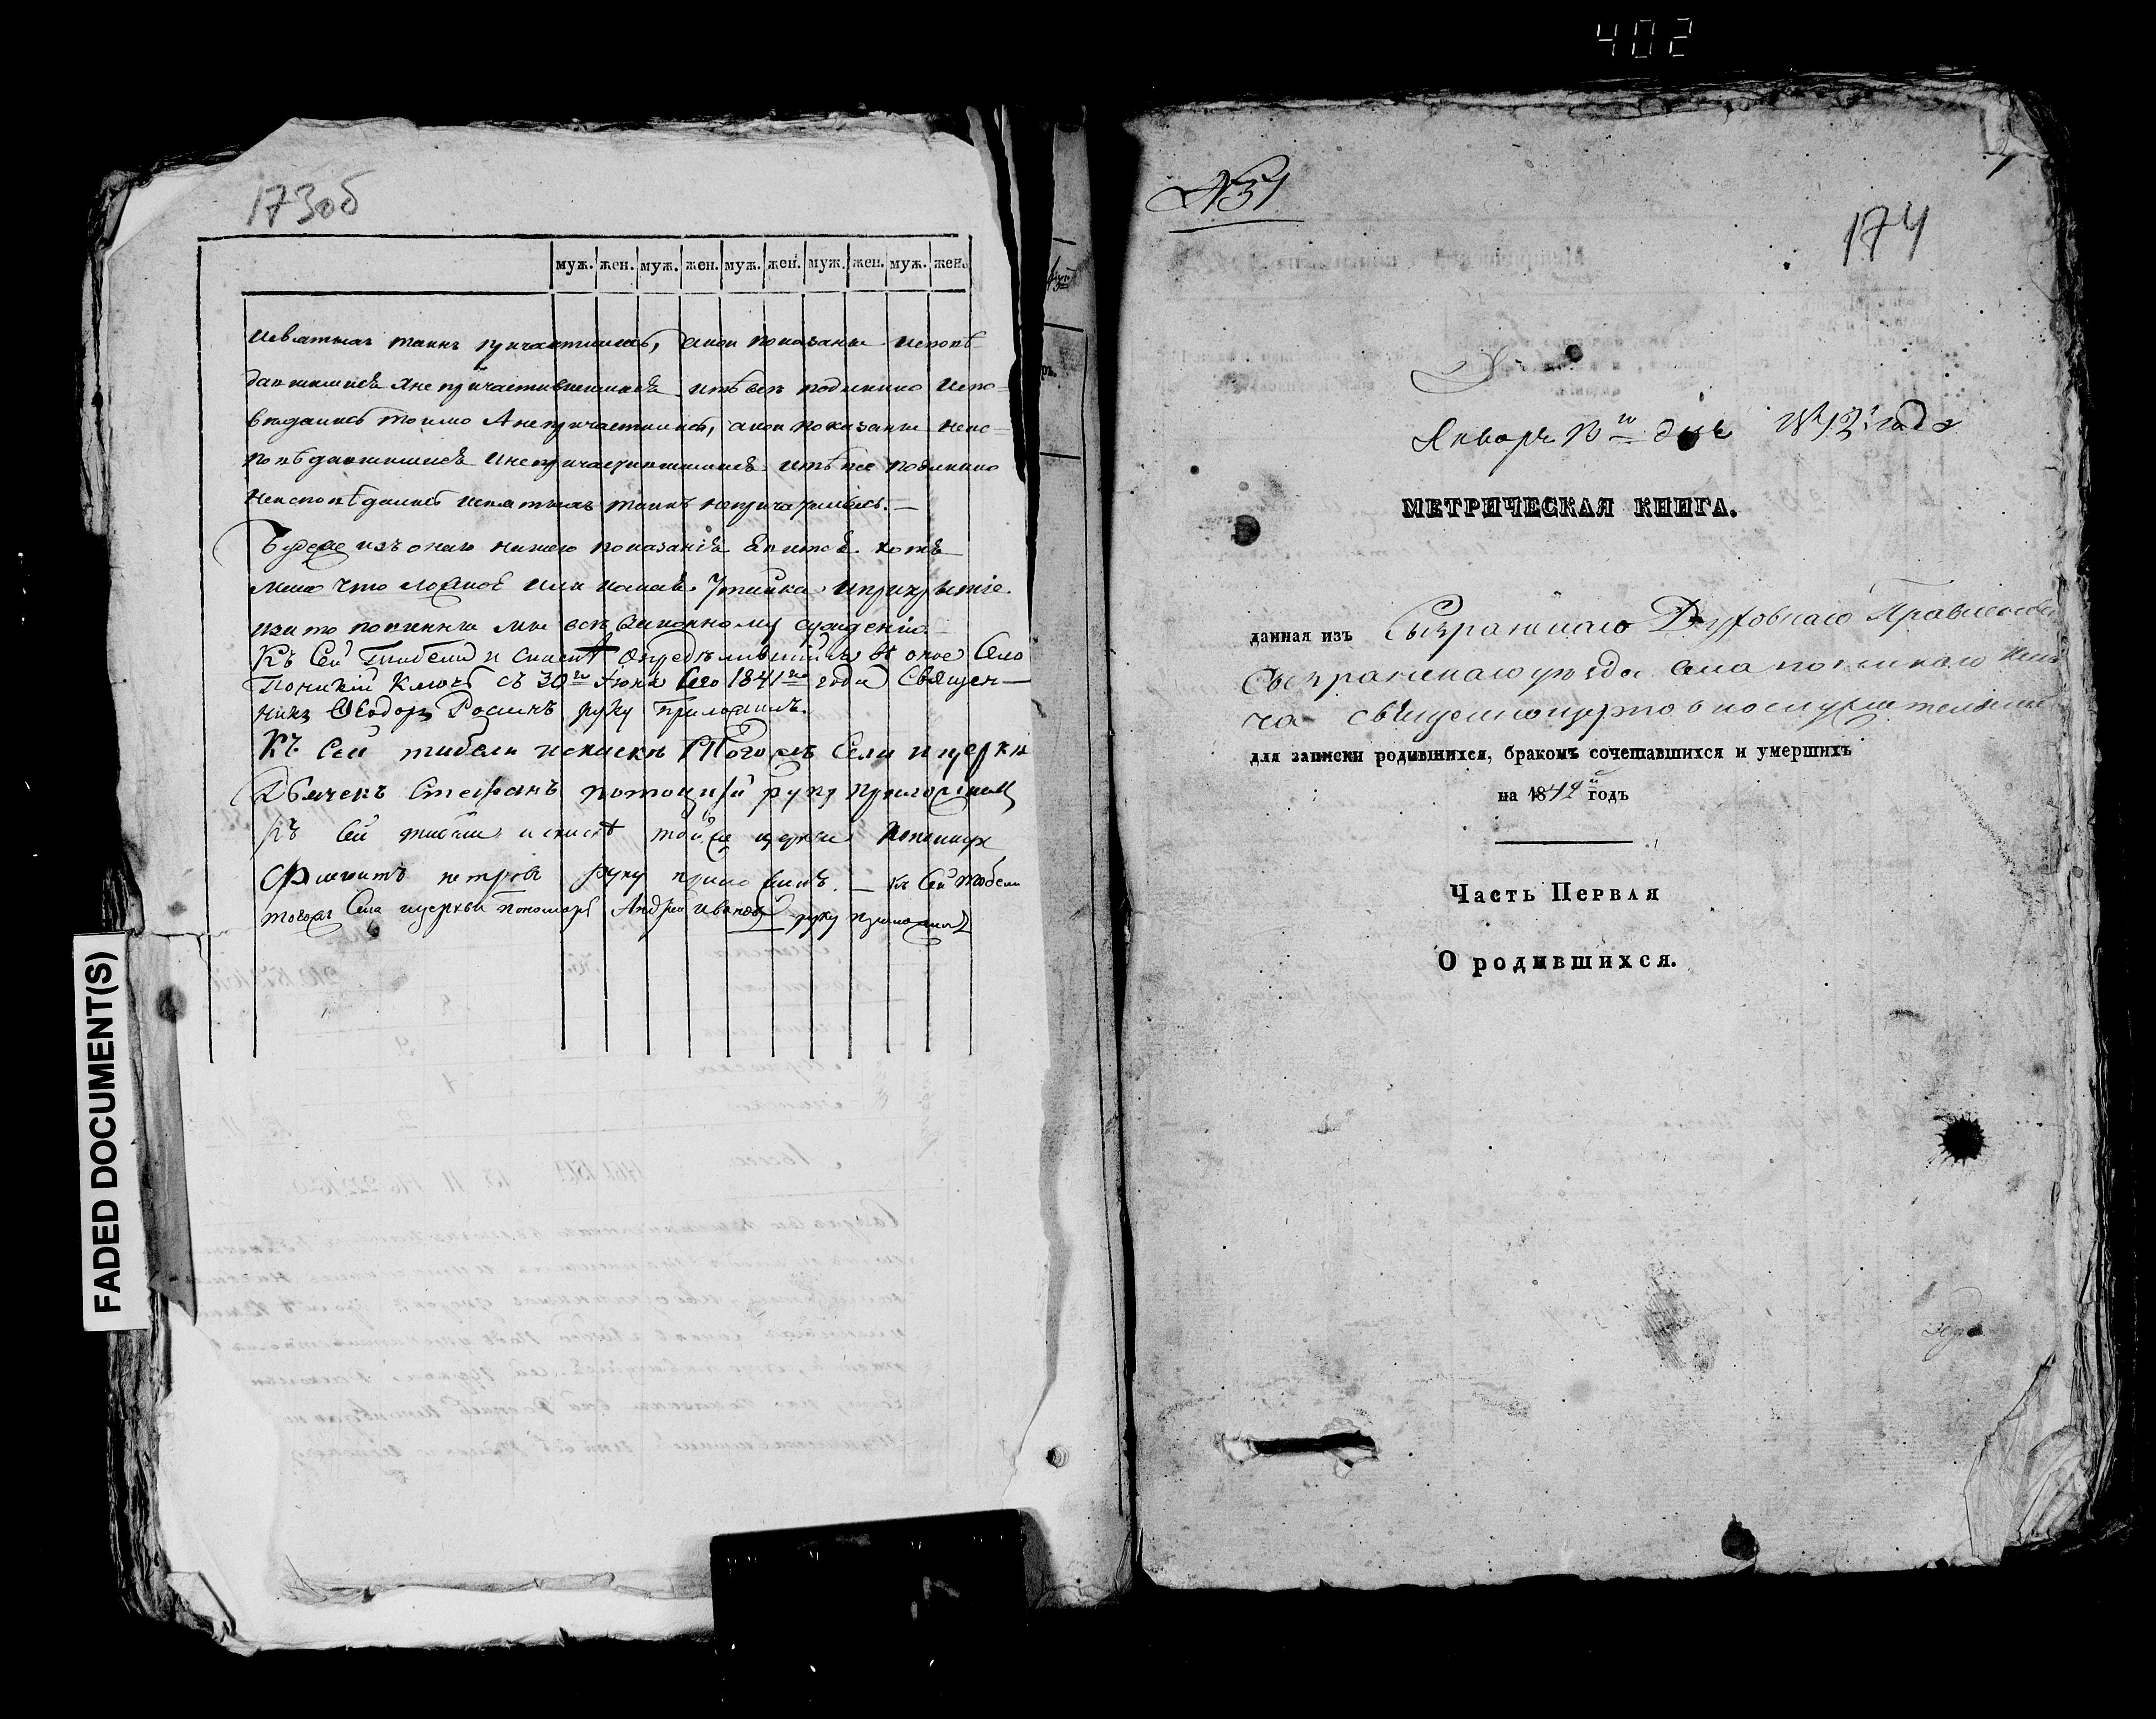 402
173об
муж. жен. муж. жен. муж. жен. муж. жен. муж. жен.
исвятыхъ таинъ причастились, а кои показаны испове
давшимися а не причастившимися и те все подлинно испо-
ведались токмо а не причастились, а кои показаны неис-
поведавшимися и не причастившимися и те все подлинно
не исповедались и святыхъ таинъ не причастились.—
Будеже изъ онаго нашего показанія явится хотя
мало что ложное или какая утайка и прикрытіе
за то повинны мы все законному сужденію
Къ Сей Табели и списку определившійся въ оное Село
Поникій Ключъ съ 30го Июня Сего 1841го года Священ—
никъ Ѳеодоръ Росинъ руку приложилъ.
Къ Сей табели и списку Тогожъ Села и церкви
Дьячекъ Стефанъ руку приложилъ
Къ Сей табели и списку тойже церкви
петровъ руку приложилъ.— къ Сей табели
тогожъ Села и церкви пономарь Андрей Ивановъ руку приложилъ
FADED DOCUMENT(S)
№ 31
174
Января го дня 1842 года
МЕТРИЧЕСКАЯ КНИГА.
данная изъ Сызранскаго Духовнаго Правленія
Сызранскаго уезда села поникаго Клю
ча священноцерковнослужителямъ
для записки родившихся, бракомъ сочетавшихся и умершихъ
на 1842й годъ
Часть Первая
О родившихся.